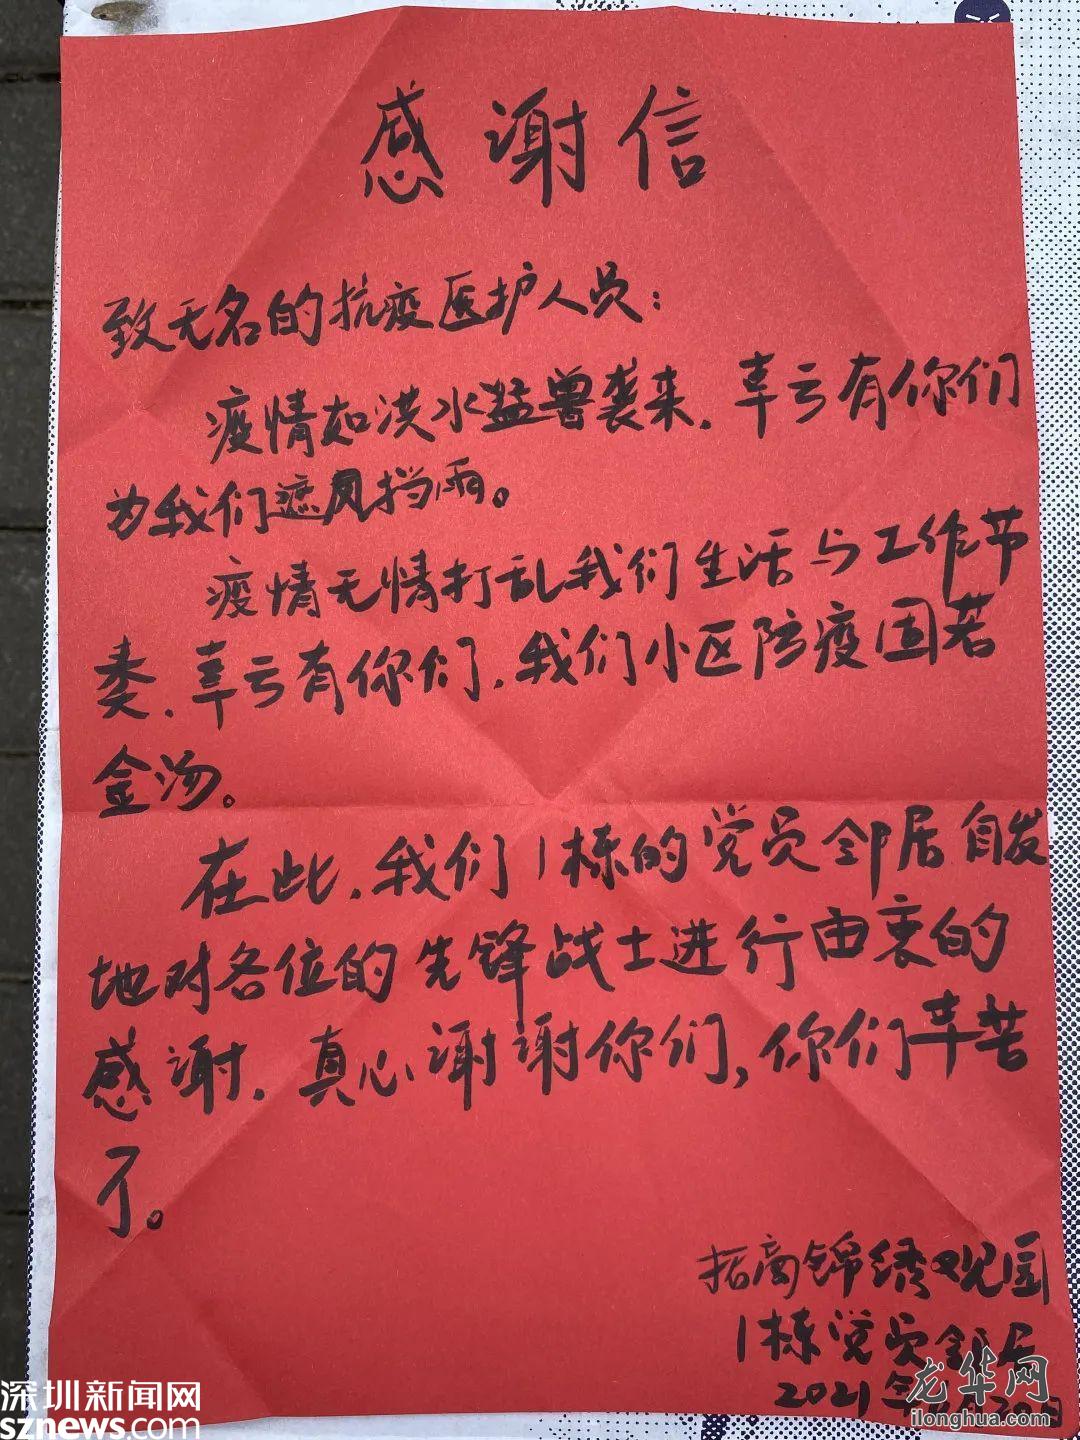 感谢信
致无名的抗疫医护人员：
疫情如洪水猛兽袭来，幸亏有你们
为我们遮风挡雨。
疫情无情打乱我们生活与工作节
奏，幸亏有你们，我们小区防疫固若
金汤。
在此，我们1栋的党员邻居自发
地对各位的先锋战士进行由衷的
感谢，真心谢谢你们，你们辛苦
了。
招商锦绣观园
1栋党员邻居
2021年 月20日
深圳新闻网
sznews.com
龙华网
ilonghua.com